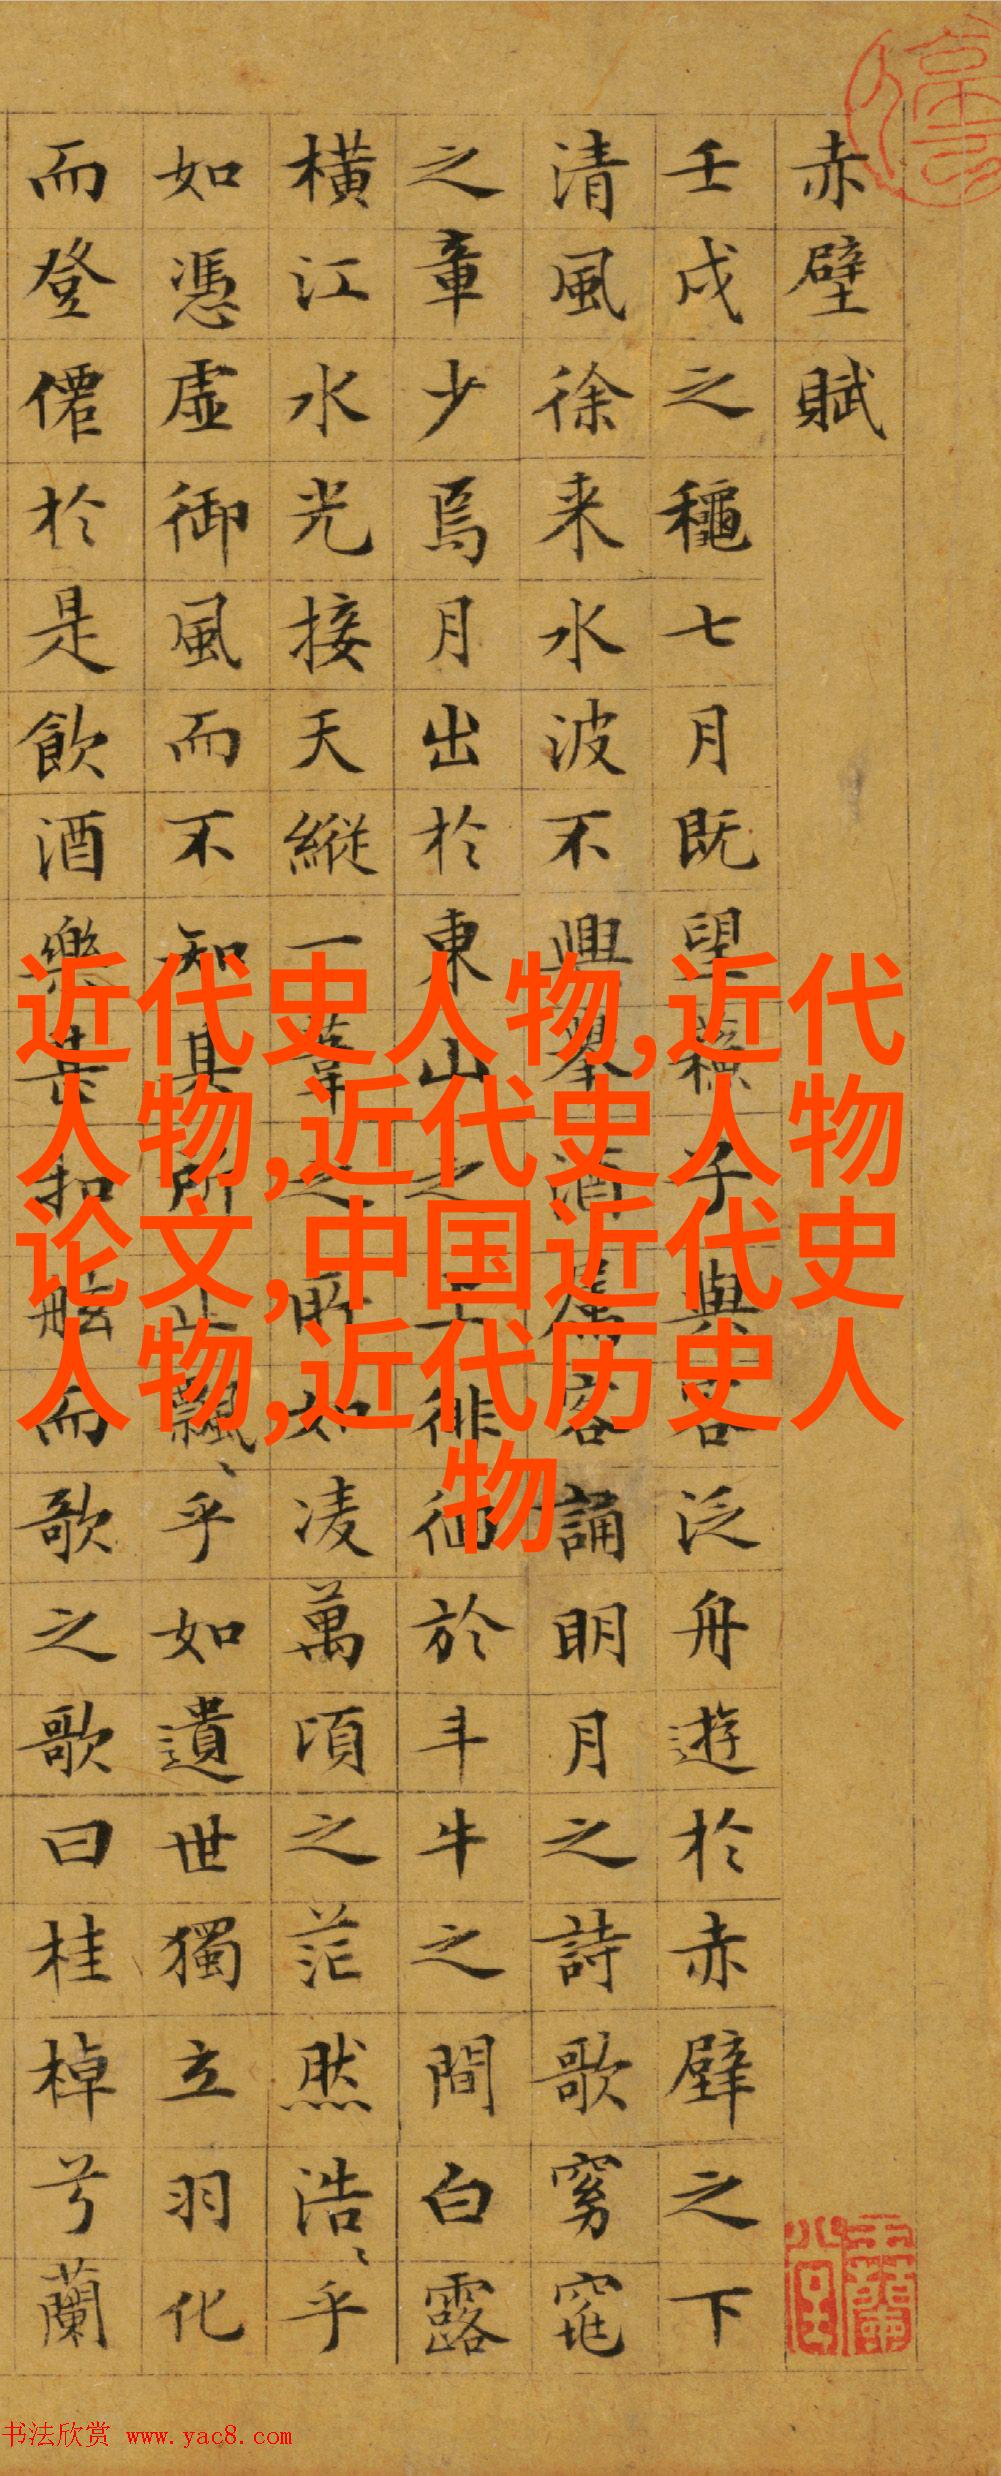 赤壁賦
壬戌之龝七月既望蘇子與客泛舟遊於赤壁之下
清風徐来水波不興舉酒屬客誦眀月之詩歌窈窕
之章少焉月出於東山之上徘徊於斗牛之間白露
橫江水光接天縱一葦之所如凌萬頃之茫然浩〻乎
如憑虛御風而不知其所止飄〻乎如遺世獨立羽化
而登僊於是飲酒樂甚扣舷而歌之歌曰桂棹兮蘭
近代史人物,近代
人物,近代史人物
论文,中国近代史
人物,近代历史人
物
书法欣赏 www.yac8.com